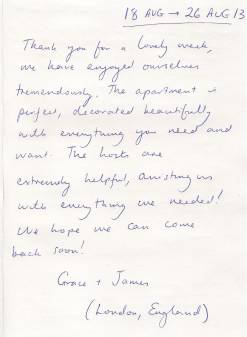 18 AUG → 26 AUG 13
Thank you for a lovely week,
we have enjoyed ourselves
tremendously. The apartment is
perfect, decorated beautifully
with everything you need and
want. The hosts are
extremely helpful, assisting us
with everything we needed!
We hope we can come
back soon!
Grace + James
(London, England)